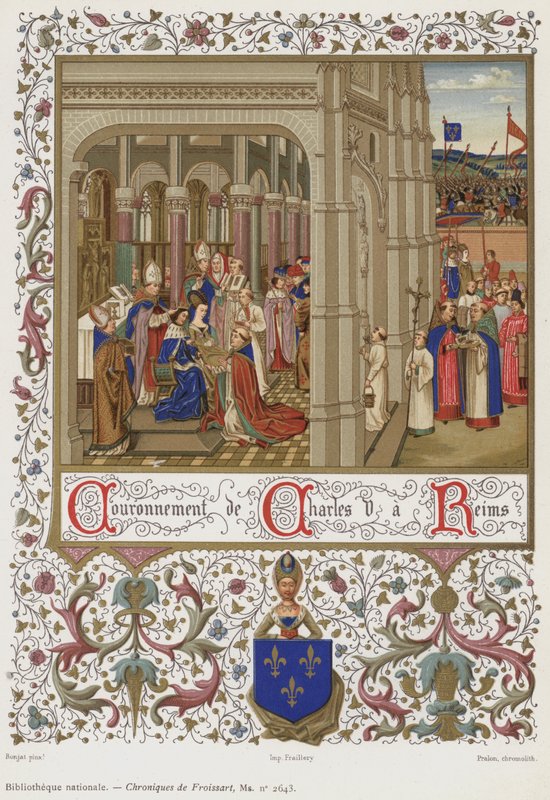 Couronnement de Charles V a Reims
Bonjat pinx.t
Imp. Fraillery
Pralon, chromolith.
Bibliothèque nationale. — Chroniques de Froissart, Ms. nº 2643.